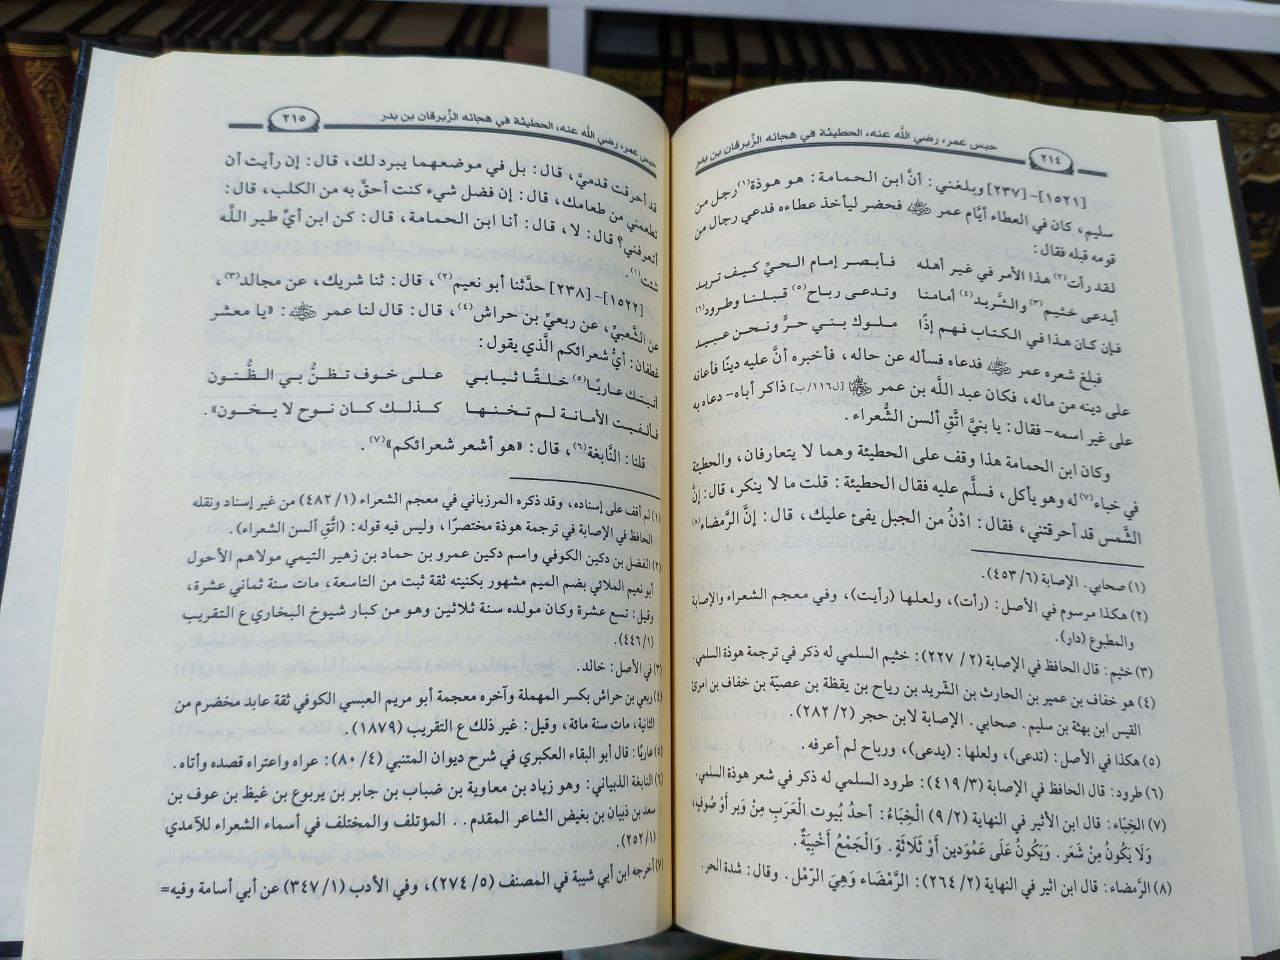 حبس عمر، رضي الله عنه، الحطيئة في هجائه الزبرقان بن بدر
٢١٤
[١٥٢١]-[٢٣٧] وبلغني: أنَّ ابن الحمامة: هو هوذة(١) رجل من
سليم، كان في العطاء أيَّام عمر ﵁ فحضر ليأخذ عطاءه فدعي رجال من
قومه قبله فقال:
لقد رأت(٢) هذا الأمر في غير أهله فأبصر إمام الحيِّ كيف تريد
أيدعى خثيم(٣) والشَّريد(٤) أمامنا وتدعى رباح(٥) قبلنا وطرود(٦)
فإن كان هذا في الكتاب فهم إذًا ملوك بني حرٍّ ونحن عبيد
فبلغ شعره عمر ﵁ فدعاه فسأله عن حاله، فأخبره أنَّ عليه دينًا فأعانه
على دينه من ماله، فكان عبد اللَّه بن عمر ﵁ [ل١١٦/ب] ذاكر أباه- دعاه به
على غير اسمه- فقال: يا بنيَّ اتَّقِ ألسن الشُّعراء.
وكان ابن الحمامة هذا وقف على الحطيئة وهما لا يتعارفان، والحطيئة
في خباء(٧) له وهو يأكل، فسلَّم عليه فقال الحطيئة: قلت ما لا ينكر، قال: إنَّ
الشَّمس قد أحرقتني، فقال: ادْنُ من الجبل يفئ عليك، قال: إنَّ الرَّمضاء(٨)
(١) صحابي. الإصابة (٦/ ٤٥٣).
(٢) هكذا مرسوم في الأصل: (رأت)، ولعلها (رأيت)، وفي معجم الشعراء والإصابة
والمطبوع (دار).
(٣) خثيم: قال الحافظ في الإصابة (٢/ ٢٢٧): خثيم السلمي له ذكر في ترجمة هوذة السلمي.
(٤) هو خفاف بن عمير بن الحارث بن الشَّريد بن رياح بن يقظة بن عصيّة بن خفاف بن امرئ
القيس ابن بهثة بن سليم. صحابي. الإصابة لابن حجر (٢/ ٢٨٢).
(٥) هكذا في الأصل: (تدعى)، ولعلها: (يدعى)، ورباح لم أعرفه.
(٦) طرود: قال الحافظ في الإصابة (٣/ ٤١٩): طرود السلمي له ذكر في شعر هوذة السلمي.
(٧) الخِباء: قال ابن الأثير في النهاية (٢/ ٩) الخِبَاءُ: أحدُ بُيوت الْعَرَبِ مِنْ وَبر أَوْ صُوفٍ،
وَلَا يَكُونُ مِنْ شَعَر. وَيَكُونُ عَلَى عَمُودَين أَوْ ثَلَاثَةٍ. وَالْجَمْعُ أَخْبِيَةٌ.
(٨) الرَّمضاء: قال ابن اثير في النهاية (٢/ ٢٦٤): الرَّمْضَاء وَهِيَ الرَّمْل. وقال: شدة الحر.
حبس عمر، رضي الله عنه، الحطيئة في هجائه الزبرقان بن بدر
٢١٥
قد أحرقت قدميَّ، قال: بل في موضعهما يبرد لك، قال: إن رأيت أن
تطعمني من طعامك، قال: إن فضل شيء كنت أحقَّ به من الكلب، قال:
أتعرفني؟ قال: لا، قال: أنا ابن الحمامة، قال: كن ابن أيِّ طير اللَّه
شئت(١).
[١٥٢٢]-[٢٣٨] حدَّثنا أبو نعيم(٢)، قال: ثنا شريك، عن مجالد(٣)،
عن الشَّعبيِّ، عن ربعيِّ بن حراش(٤)، قال: قال لنا عمر ﵁: «يا معشر
غطفان: أيُّ شعرائكم الَّذي يقول:
أتيتك عاريًا(٥) خلقًا ثيابي على خوف تظنُّ بي الظُّنون
فألفيت الأمانة لم تخنها كذلك كان نوح لا يخون».
قلنا: النَّابغة(٦)، قال: «هو أشعر شعرائكم»(٧).
(١) لم أقف على إسناده، وقد ذكره المرزباني في معجم الشعراء (١/ ٤٨٢) من غير إسناد ونقله
الحافظ في الإصابة في ترجمة هوذة مختصرًا، وليس فيه قوله: (اتَّقِ ألسن الشعراء).
(٢) الفضل بن دكين الكوفي واسم دكين عمرو بن حماد بن زهير التيمي مولاهم الأحول
أبو نعيم الملائي بضم الميم مشهور بكنيته ثقة ثبت من التاسعة، مات سنة ثماني عشرة،
وقيل: تسع عشرة وكان مولده سنة ثلاثين وهو من كبار شيوخ البخاري ع التقريب
(١/ ٤٤٦).
(٣) في الأصل: خالد.
(٤) ربعي بن حراش بكسر المهملة وآخره معجمة أبو مريم العبسي الكوفي ثقة عابد مخضرم من
الثانية، مات سنة مائة، وقيل: غير ذلك ع التقريب (١٨٧٩).
(٥) عاريًا: قال أبو البقاء العكبري في شرح ديوان المتنبي (٤/ ٨٠): عراه واعتراه قصده وأتاه.
(٦) النابغة الذبياني: وهو زياد بن معاوية بن ضباب بن جابر بن يربوع بن غيظ بن عوف بن
سعد بن ذبيان بن بغيض الشاعر المقدم.. المؤتلف والمختلف في أسماء الشعراء للآمدي
(١/ ٢٥٢).
(٧) أخرجه ابن أبي شيبة في المصنف (٥/ ٢٧٤)، وفي الأدب (١/ ٣٤٧) عن أبي أسامة وفيه=